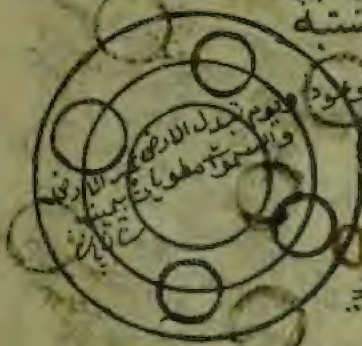 شتبه
وعود
ويوم تبدل الارض غير الارض
والسموات مطويات بيمينه